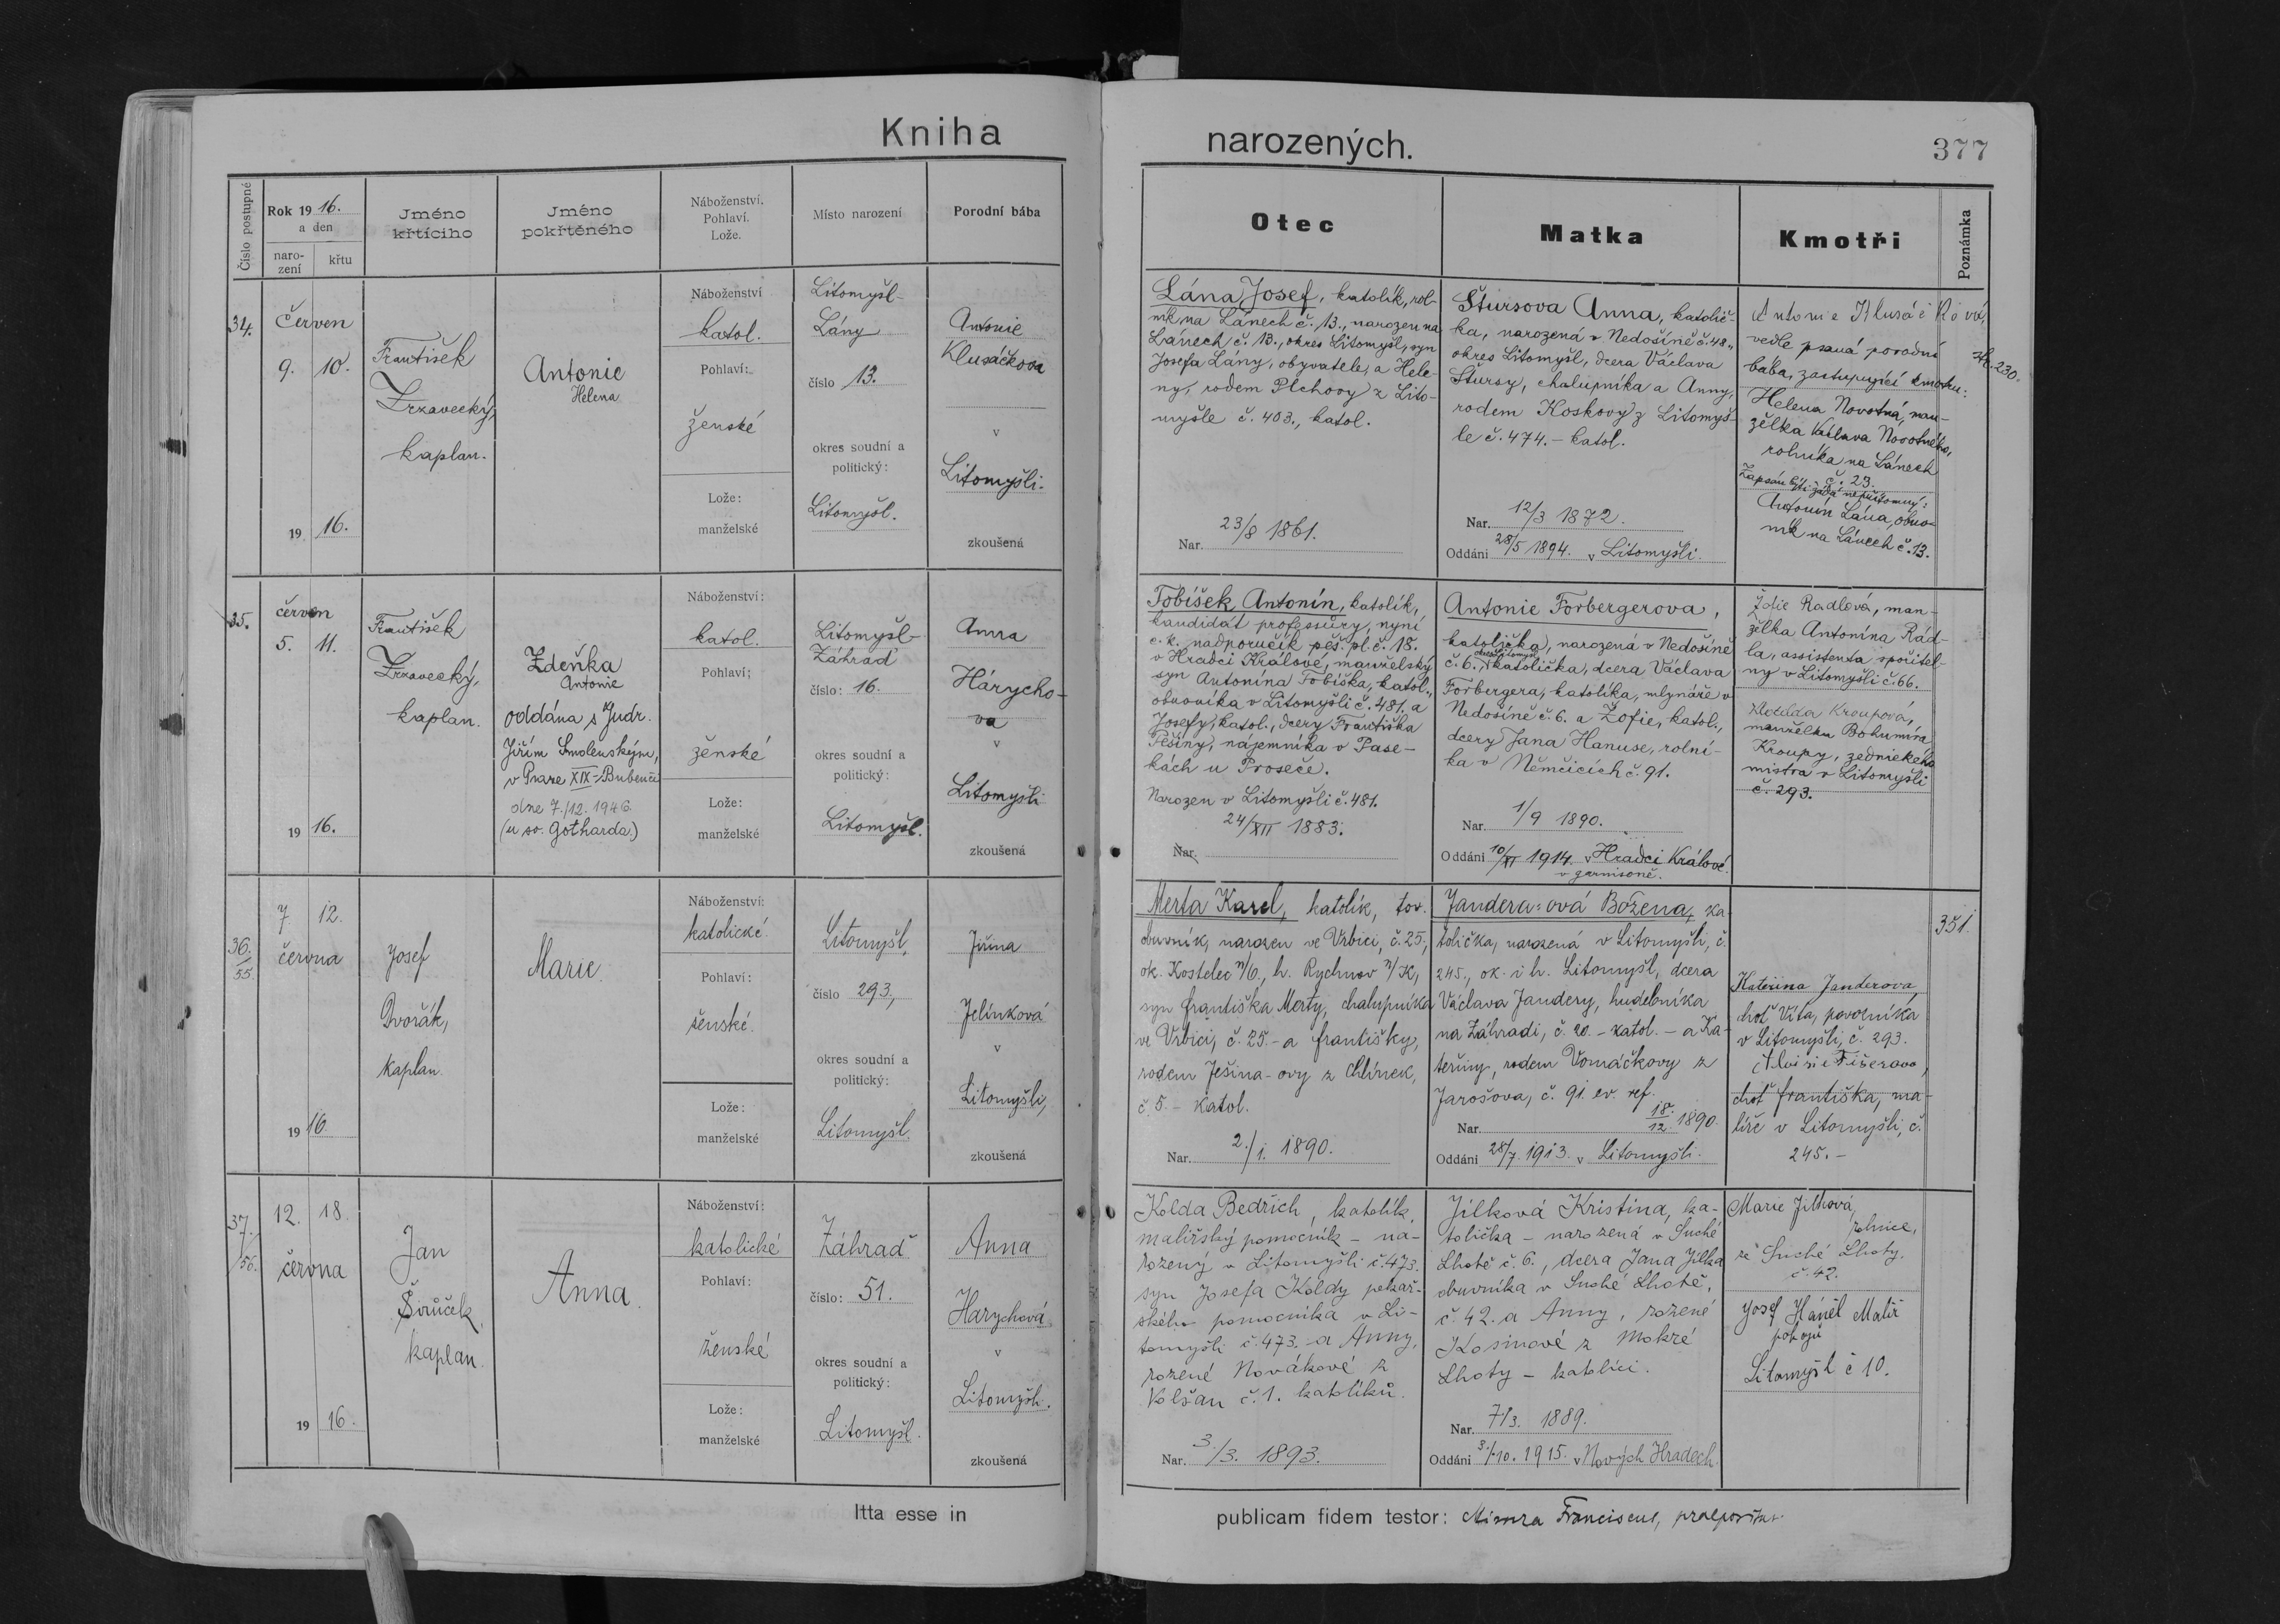 Kniha
narozených.
377
Číslo postupné
Rok 19 16.
a den
naro-
zení
křtu
Jméno
křtícího
Jméno
pokřtěného
Náboženství.
Pohlaví.
Lože.
Místo narození
Porodní bába
Otec
Matka
Kmotři
Poznámka
34.
Červen
9. 10.
19 16.
František
Zrzavecký,
kaplan.
Antonie
Helena
Náboženství
katol.
Pohlaví:
ženské
Lože:
manželské
Litomyšl-
Lány
číslo 13.
okres soudní a
politický:
Litomyšl.
Antonie
Klusáčkova
v
Litomyšli.
zkoušená
Lána Josef, katolík, rol-
ník na Lánech č. 13., narozen na
Lánech č. 13., okres Litomyšl, syn
Josefa Lány, obyvatele, a Hele-
ny, rodem Plchovy z Lito-
myšle č. 403., katol.
Nar. 23/8 1861.
Štursova Anna, katolič-
ka, narozená v Nedošíně č. 48.,
okres Litomyšl, dcera Václava
Štursy, chalupníka a Anny,
rodem Koskovy z Litomyš-
le č. 474. - katol.
Nar. 12/3 1872.
Oddáni 28/5 1894. v Litomyšli.
Antonie Klusáčková,
vedle psaná porodní
bába, zastupující kmotru:
Helena Novotná, man-
želka Václava Novotného,
rolníka na Lánech
č. 23.
Zapsán býti žádá nepřítomný:
Antonín Lána, obuv-
ník na Lánech č. 13.
230.
35.
červen
5. 11.
19 16.
František
Zrzavecký,
kaplan.
Zdeňka
Antonie
oddána s Judr.
Jiřím Smolenským,
v Praze XIX-Bubenči
dne 7./12. 1946.
(u sv. Gotharda.)
Náboženství:
katol.
Pohlaví:
ženské
Lože:
manželské
Litomyšl-
Záhraď
číslo: 16.
okres soudní a
politický:
Litomyšl.
Anna
Hárycho-
va
v
Litomyšli
zkoušená
Tobíšek Antonín, katolík,
kandidát professury, nyní
c. k. nadporučík pěš. pl. č. 18.
v Hradci Králové, manželský
syn Antonína Tobíška, katol.,
obuvníka v Litomyšli č. 481. a
Josefy, katol., dcery Františka
Pešiny, nájemníka v Pase-
kách u Proseče.
Narozen v Litomyšli č. 481.
24/XII 1883.
Nar.
Antonie Forbergerova,
katolička, narozená v Nedošíně
č. 6., okres Litomyšl, katolička, dcera Václava
Forbergera, katolíka, mlynáře v
Nedošíně č. 6. a Žofie, katol.,
dcery Jana Hanuse, rolní-
ka v Němčicích č. 91.
Nar. 1/9 1890.
Oddáni 10/XI 1914. v Hradci Králové
v garnisoně.
Žofie Radlová, man-
želka Antonína Rád-
la, assistenta spořitel-
ny v Litomyšli č. 66.
Kroupová,
manželka Bohumíra
Kroupy, zednického
mistra v Litomyšli
č. 293.
36.
/55.
7. 12.
června
19 16
Josef
Dvořák,
kaplan.
Marie
Náboženství:
katolické
Pohlaví:
ženské.
Lože:
manželské
Litomyšl,
číslo 293,
okres soudní a
politický:
Litomyšl.
Jiřina
Jelínková
v
Litomyšli,
zkoušená
Merta Karel, katolík, tov.
obuvník, narozen ve Vrbici, č. 25.,
ok. Kostelec n/O., h. Rychnov n/K,
syn Františka Merty, chalupníka
ve Vrbici, č. 25. - a Františky,
rodem Ješina-ovy z Chlínek,
č. 5. - katol.
Nar. 2./1. 1890.
Jandera-ová Božena, ka-
tolička, narozená v Litomyšli, č.
245., ok. i h. Litomyšl, dcera
Václava Jandery, hudebníka
na Záhradí, č. 20. - katol. - a Ka-
teřiny, rodem Vomáčkovy z
Jarošova, č. 91. ev. ref.
Nar. 18./12. 1890.
Oddáni 28/7. 1913. v Litomyšli.
Kateřina Janderova,
choť Víta, povozníka
v Litomyšli, č. 293.
Fišerova,
choť Františka, ma-
líře v Litomyšli, č.
245. -
351.
37.
/56.
12. 18.
června
19 16.
Jan
Šiřůček
kaplan.
Anna.
Náboženství:
katolické
Pohlaví:
ženské
Lože:
manželské
Záhraď
číslo: 51.
okres soudní a
politický:
Litomyšl.
Anna
Harychová
v
Litomyšli.
zkoušená
Kolda Bedřich, katolík,
malířský pomocník - na-
rozený v Litomyšli č. 473.
syn Josefa Koldy pekař-
ského pomocníka v Li-
tomyšli č. 473. - a Anny,
rozené Novákové z
Volšan č. 1. katolíků.
Nar. 3./3. 1893.
Jílková Kristina, ka-
tolička - narozená v Suché
Lhotě č. 6., dcera Jana Jílka
obuvníka v Suché Lhotě,
č. 42. a Anny, rozené
Kosinové z Mokré
Lhoty - katolíci.
Nar. 7/3. 1889.
Oddáni 3./10. 1915. v Nových Hradech.
Marie Jílková,
rolnice,
ze Suché Lhoty.
č. 42.
Josef Háněl Malíř
pokojů
Litomyšl č 10.
Itta esse in
publicam fidem testor: Mimra Franciscus, praepositus.